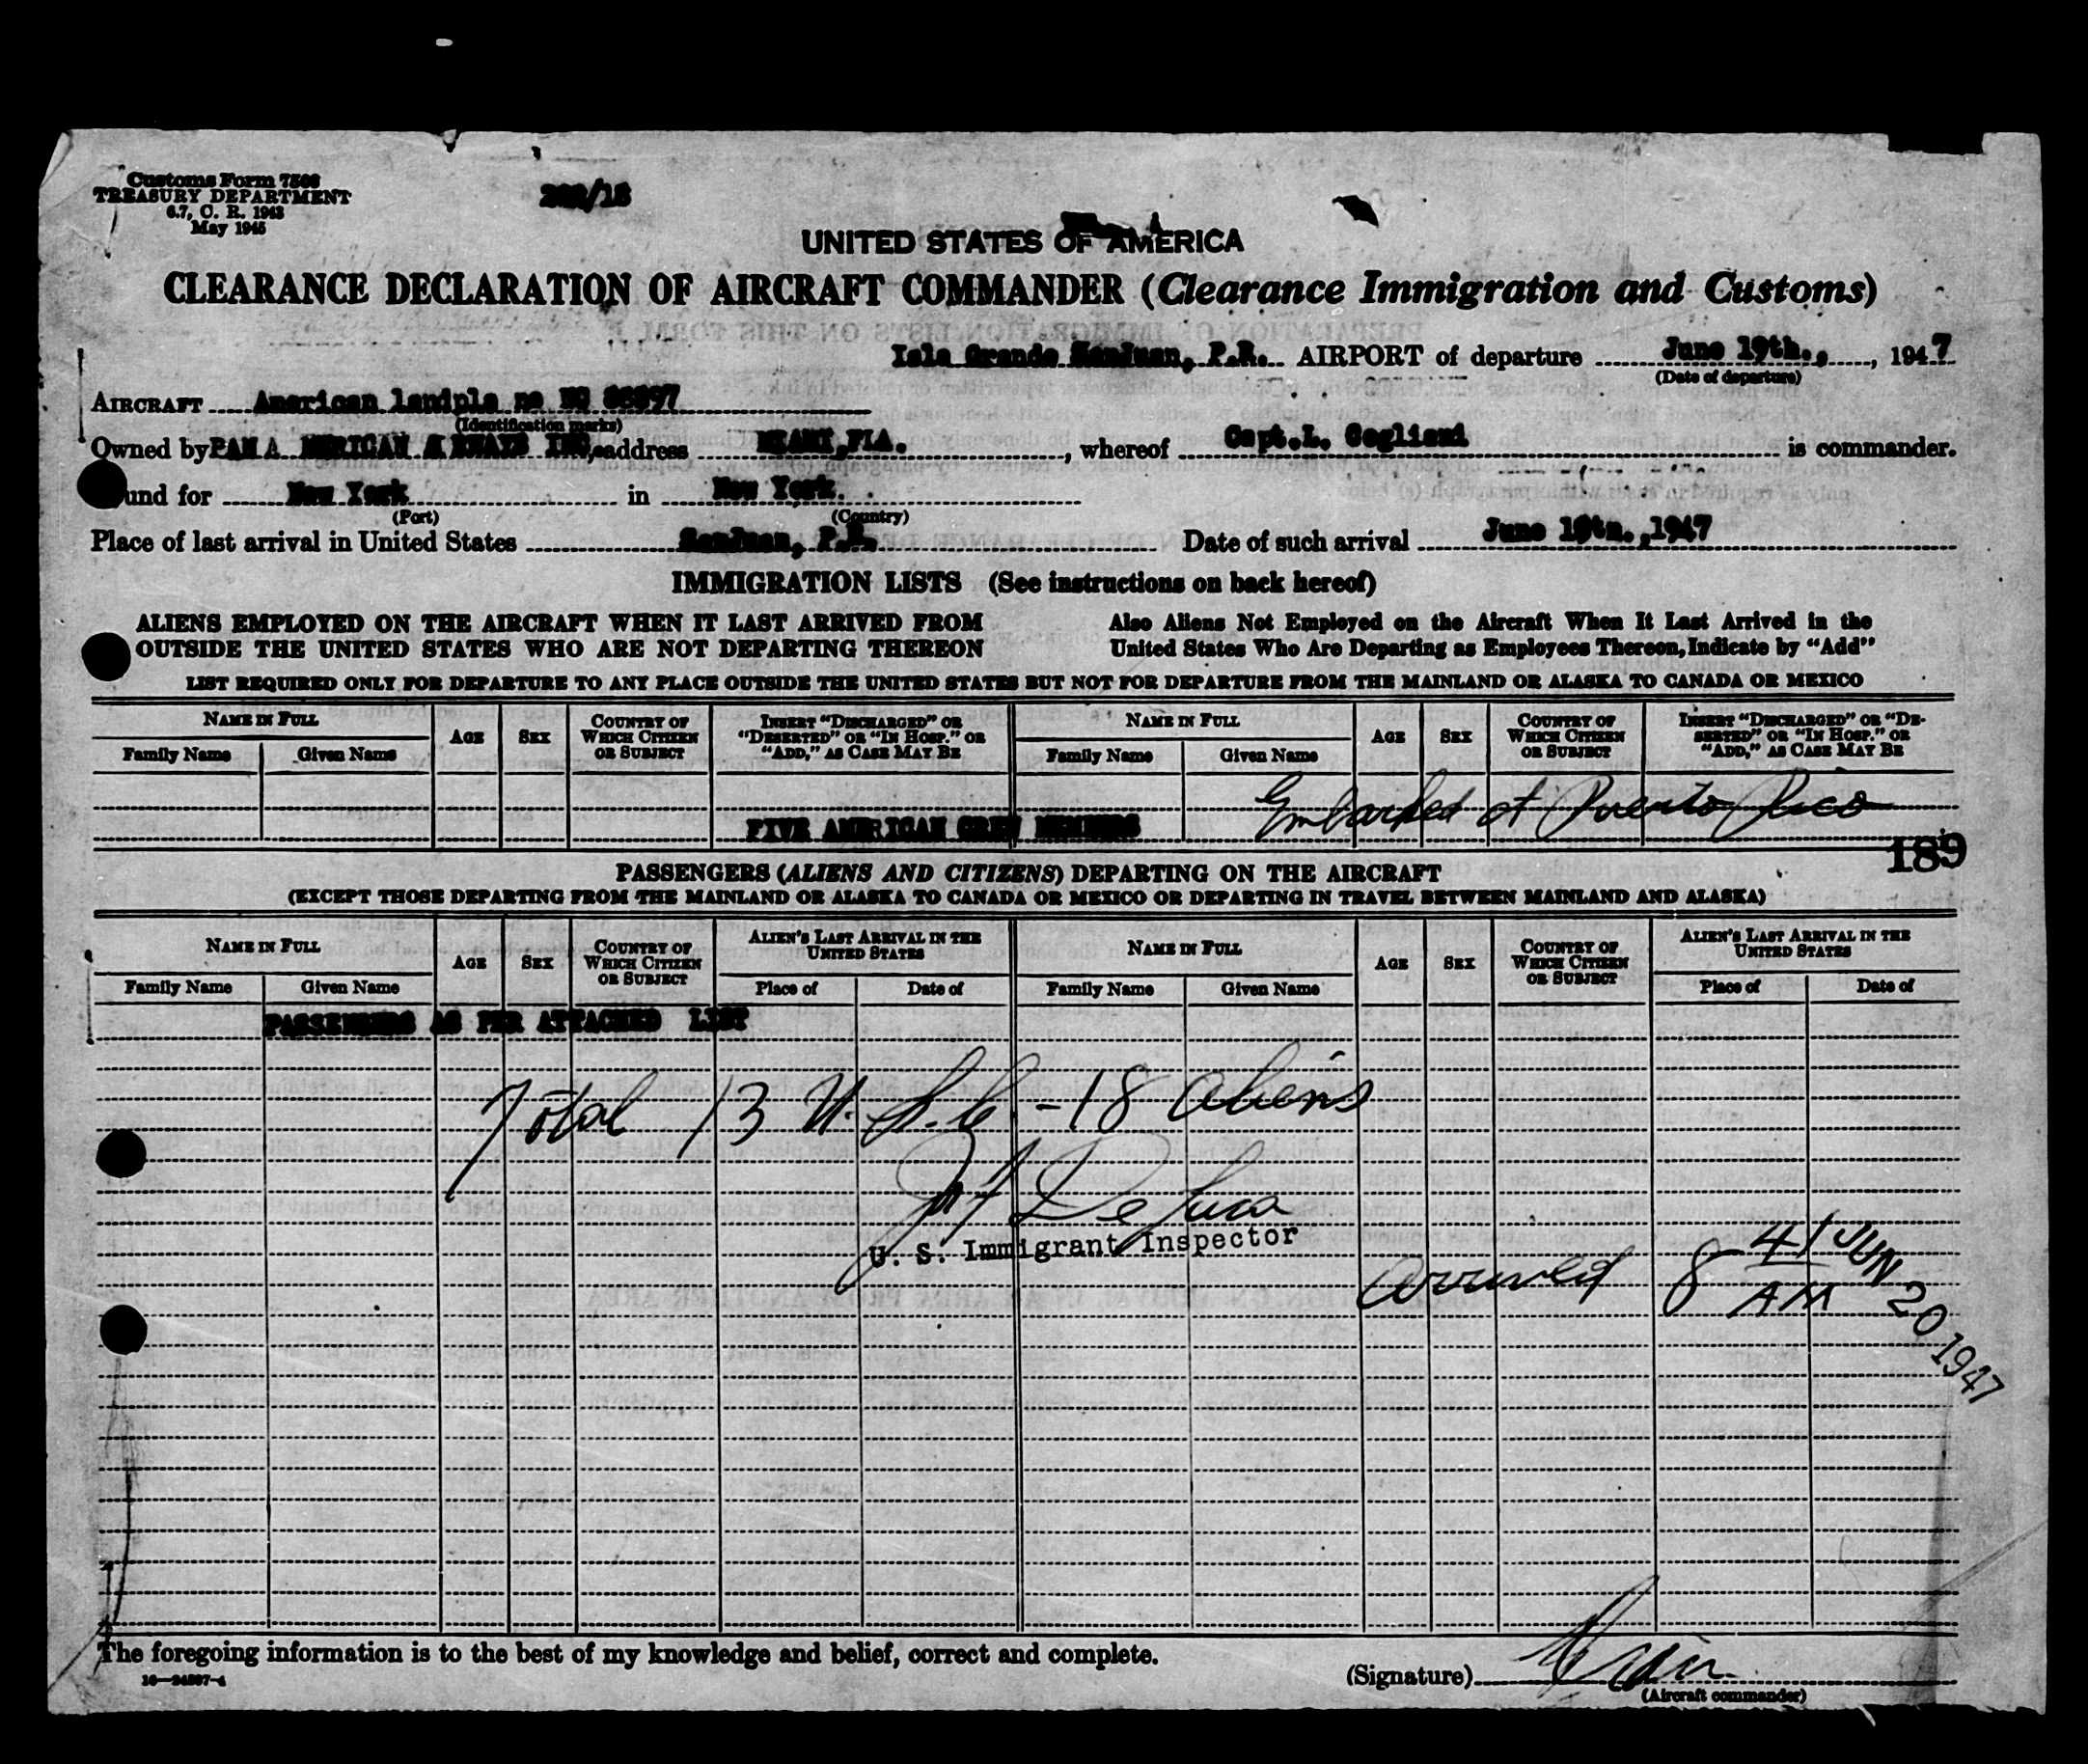 Customs Form 7506
TREASURY DEPARTMENT
6.7, C. R. 1943
May 1945
UNITED STATES OF AMERICA
CLEARANCE DECLARATION OF AIRCRAFT COMMANDER (Clearance Immigration and Customs)
Isla Grande SanJuan, P.R. AIRPORT of departure June 19th., , 1947
(Date of departure)
AIRCRAFT American landpla ne
(Identification marks)
Owned by PAN A MERICAN A RWAYS INC, address MIAMI, FLA. , whereof Capt. L. is commander.
und for New York in New York.
(Port) (Country)
Place of last arrival in United States SanJuan, P.R. Date of such arrival June 19th., 1947
IMMIGRATION LISTS (See instructions on back hereof)
ALIENS EMPLOYED ON THE AIRCRAFT WHEN IT LAST ARRIVED FROM OUTSIDE THE UNITED STATES WHO ARE NOT DEPARTING THEREON
Also Aliens Not Employed on the Aircraft When It Last Arrived in the United States Who Are Departing as Employees Thereon, Indicate by "Add"
LIST REQUIRED ONLY FOR DEPARTURE TO ANY PLACE OUTSIDE THE UNITED STATES BUT NOT FOR DEPARTURE FROM THE MAINLAND OR ALASKA TO CANADA OR MEXICO
NAME IN FULL
Family Name Given Name
AGE SEX
COUNTRY OF WHICH CITIZEN OR SUBJECT
INSERT "DISCHARGED" OR "DESERTED" OR "IN HOSP." OR "ADD," AS CASE MAY BE
NAME IN FULL
Family Name Given Name
AGE SEX
COUNTRY OF WHICH CITIZEN OR SUBJECT
INSERT "DISCHARGED" OR "DESERTED" OR "IN HOSP." OR "ADD," AS CASE MAY BE
Embarked at Puerto Rico
FIVE AMERICAN CREW MEMBERS
189
PASSENGERS (ALIENS AND CITIZENS) DEPARTING ON THE AIRCRAFT
(EXCEPT THOSE DEPARTING FROM THE MAINLAND OR ALASKA TO CANADA OR MEXICO OR DEPARTING IN TRAVEL BETWEEN MAINLAND AND ALASKA)
NAME IN FULL
Family Name Given Name
AGE SEX
COUNTRY OF WHICH CITIZEN OR SUBJECT
ALIEN'S LAST ARRIVAL IN THE UNITED STATES
Place of Date of
NAME IN FULL
Family Name Given Name
AGE SEX
COUNTRY OF WHICH CITIZEN OR SUBJECT
ALIEN'S LAST ARRIVAL IN THE UNITED STATES
Place of Date of
PASSENGERS AS PER ATTACHED LIST
Total 13 U.S.C. - 18 aliens
De Luca
U. S. Immigrant Inspector
arrived 8 41 AM JUN 20 1947
The foregoing information is to the best of my knowledge and belief, correct and complete.
(Signature)
(Aircraft commander)